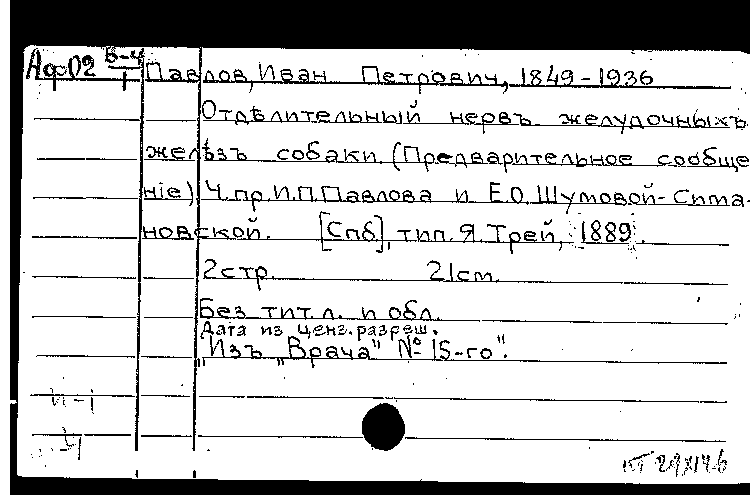 Аф02 Б-4/1 Павлов, Иван Петрович, 1849-1936
Отдѣлительный нервъ желудочныхъ
желѣзъ собаки. (Предварительное сообще
ніе) Ч. пр. И.П. Павлова и Е.О. Шумовой-Сима-
новской. [Спб], тип. Я. Трей, [1889].
2 стр. 21 см.
Без тит. л. и обл.
Дата из ценз. разреш.
"Изъ „Врача" № 15-го".
И-1